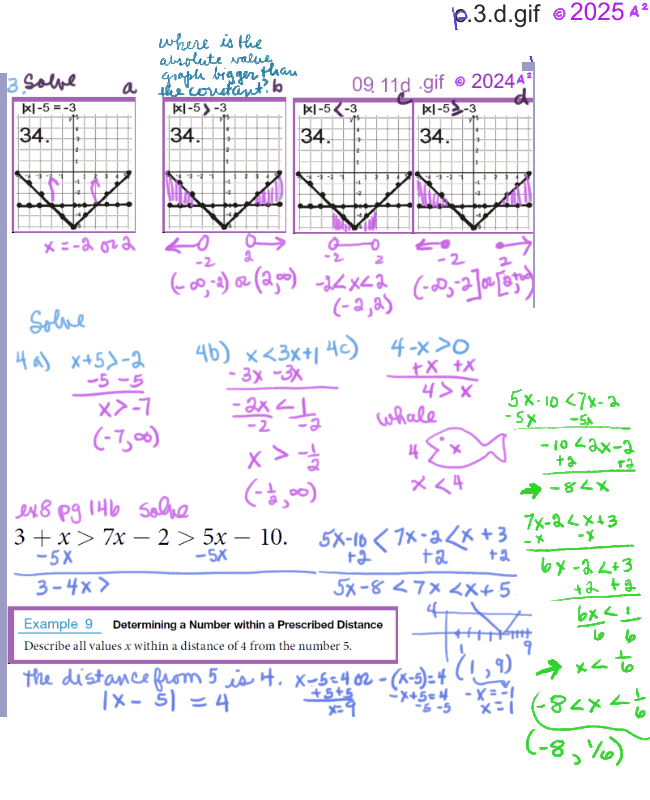 p.3.d.gif © 2025 A²
where is the
absolute value
graph bigger than
the constant?
09.11d.gif © 2024 A²
3. Solve a b c d
|x|-5 = -3
34.
x = -2 or 2
|x|-5 > -3
34.
-2 2
(-∞,-2) or (2,∞)
|x|-5 < -3
34.
-2 2
-2<x<2
(-2,2)
|x|-5 ≥ -3
34.
-2 2
(-∞,-2] or [2,+∞)
Solve
4a) x+5>-2
-5 -5
x>-7
(-7,∞)
4b) x<3x+1
-3x -3x
-2x < 1
-2 -2
x > -1/2
(-1/2,∞)
4c) 4-x>0
+x +x
4 > x
whale
4 x
x < 4
ex8 pg 146 solve
3 + x > 7x − 2 > 5x − 10.
-5x -5x
3-4x >
5x-10 < 7x-2 < x+3
+2 +2 +2
5x-8 < 7x < x+5
5x-10 < 7x-2
-5x -5x
-10 < 2x-2
+2 +2
-8 < x
7x-2 < x+3
-x -x
6x-2 < +3
+2 +2
6x < 1
6 6
x < 1/6
-8 < x < 1/6
(-8, 1/6)
Example 9 Determining a Number within a Prescribed Distance
Describe all values x within a distance of 4 from the number 5.
4
1 9
(1,9)
the distance from 5 is 4.
|x-5| = 4
x-5=4 or -(x-5)=4
+5+5
x=9
-x+5=4
-5 -5
-x=-1
x=1